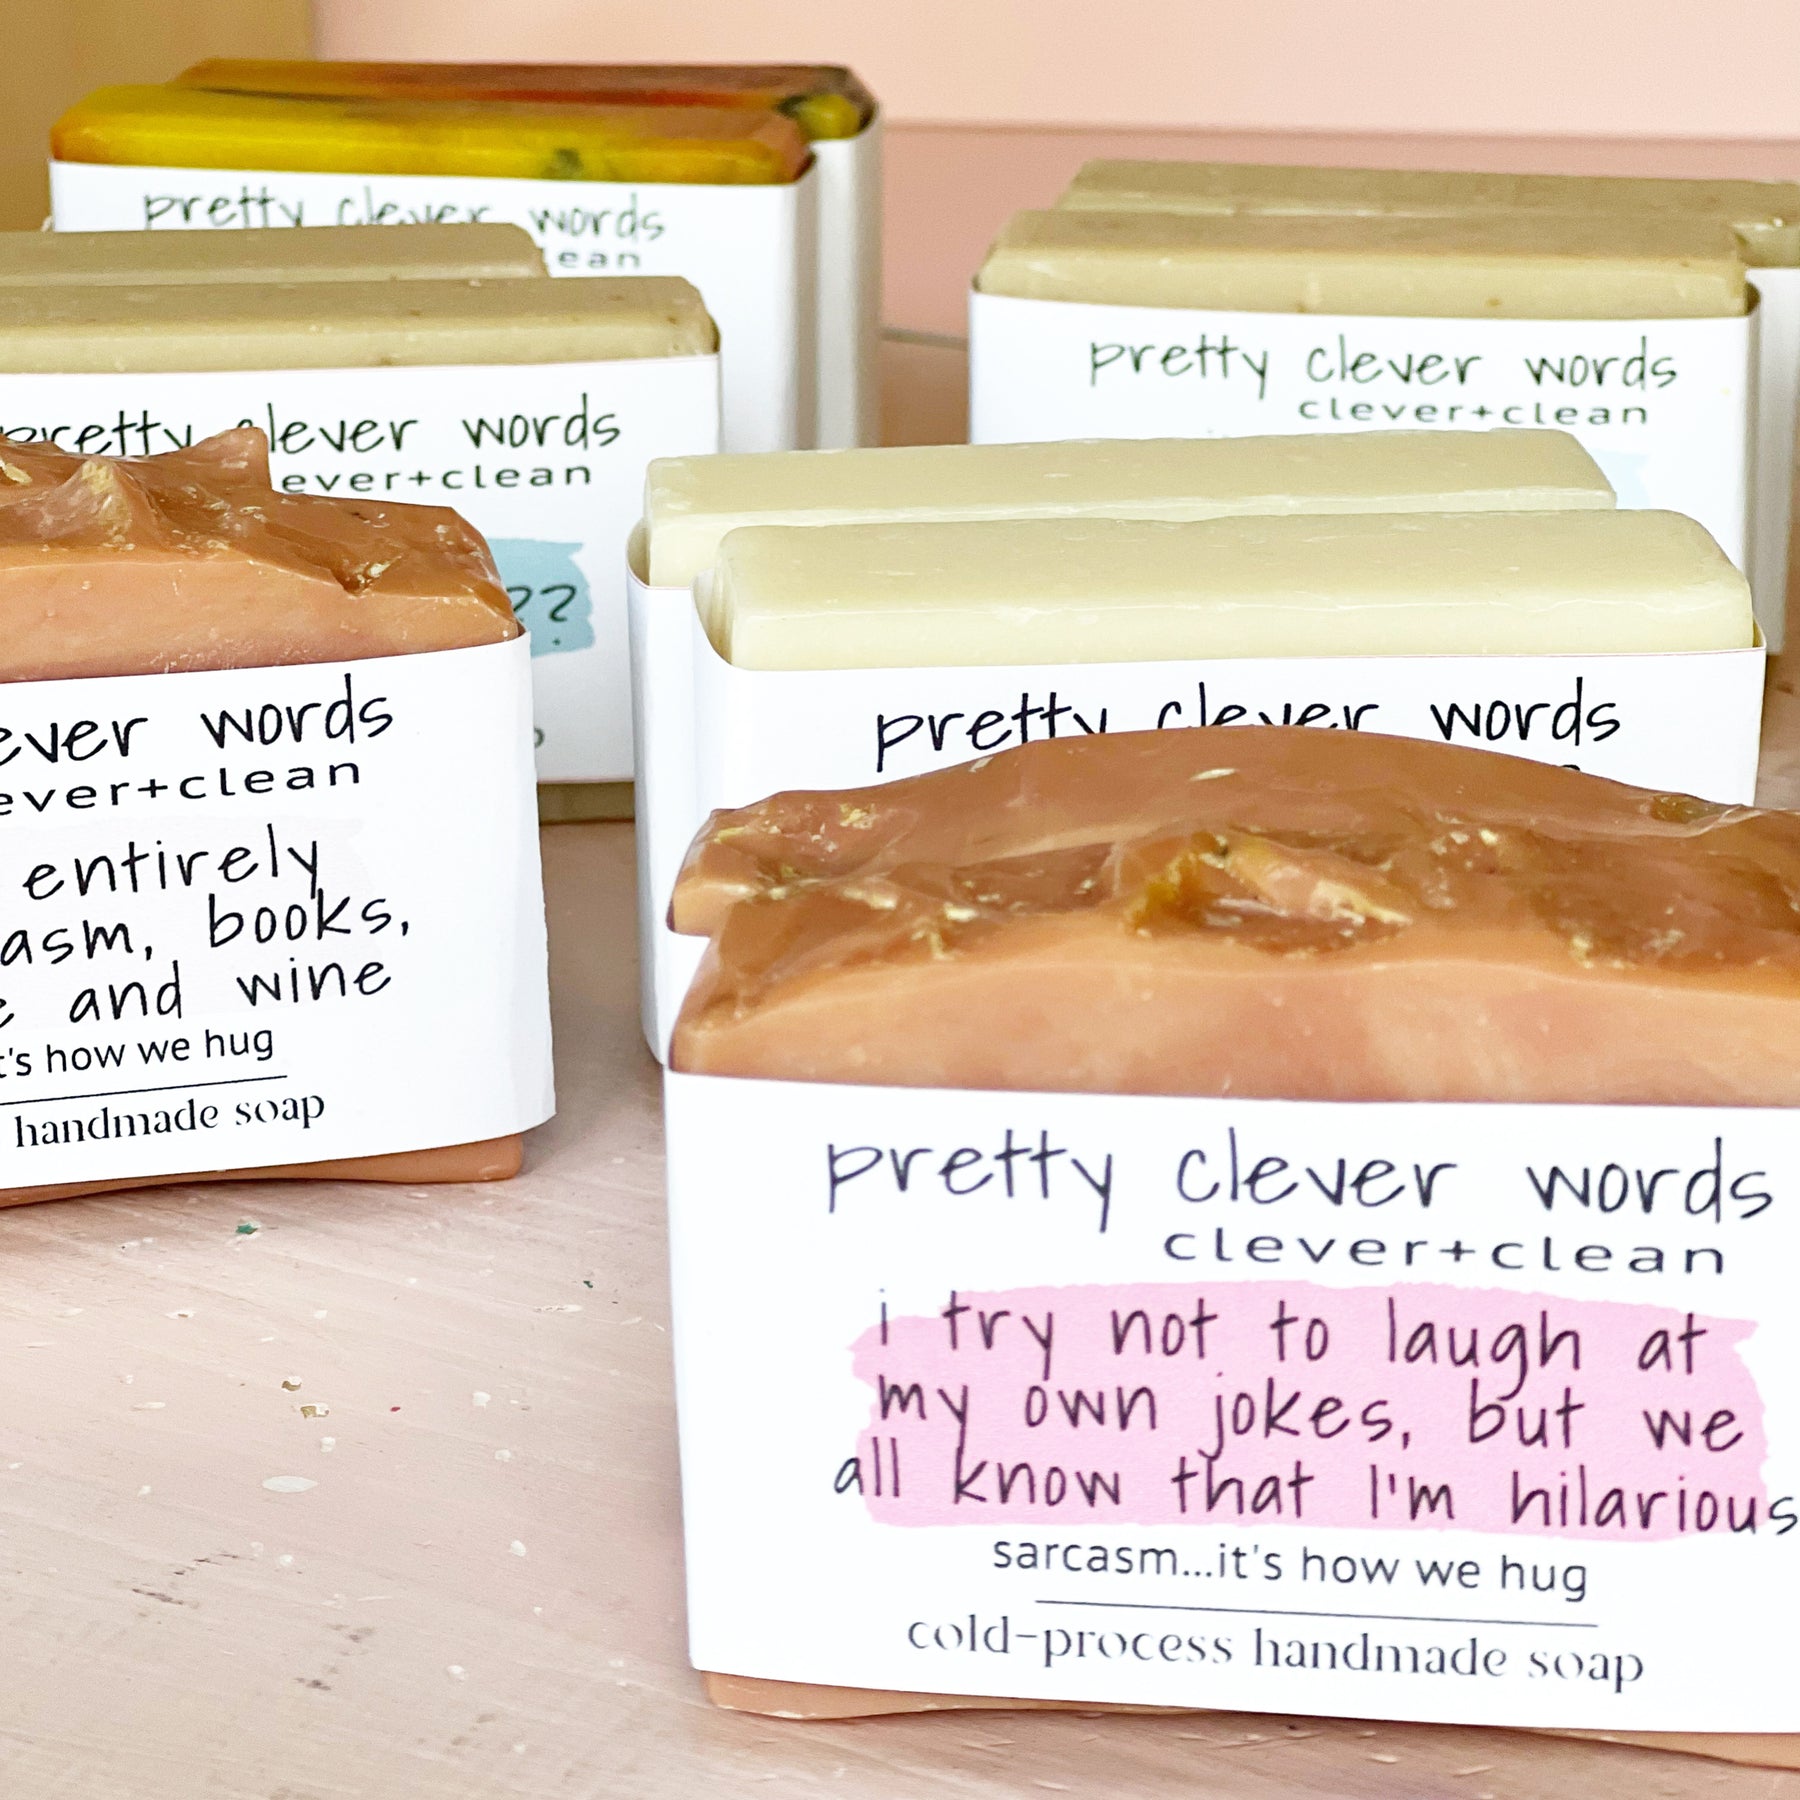 pretty clever words
pretty clever words
clever+clean
pretty clever words
words
entirely
books,
and wine
it's how we hug
handmade soap
??
pretty clever words
pretty clever words
clever+clean
i try not to laugh at
my own jokes, but we
all know that I'm hilarious
sarcasm...it's how we hug
cold-process handmade soap